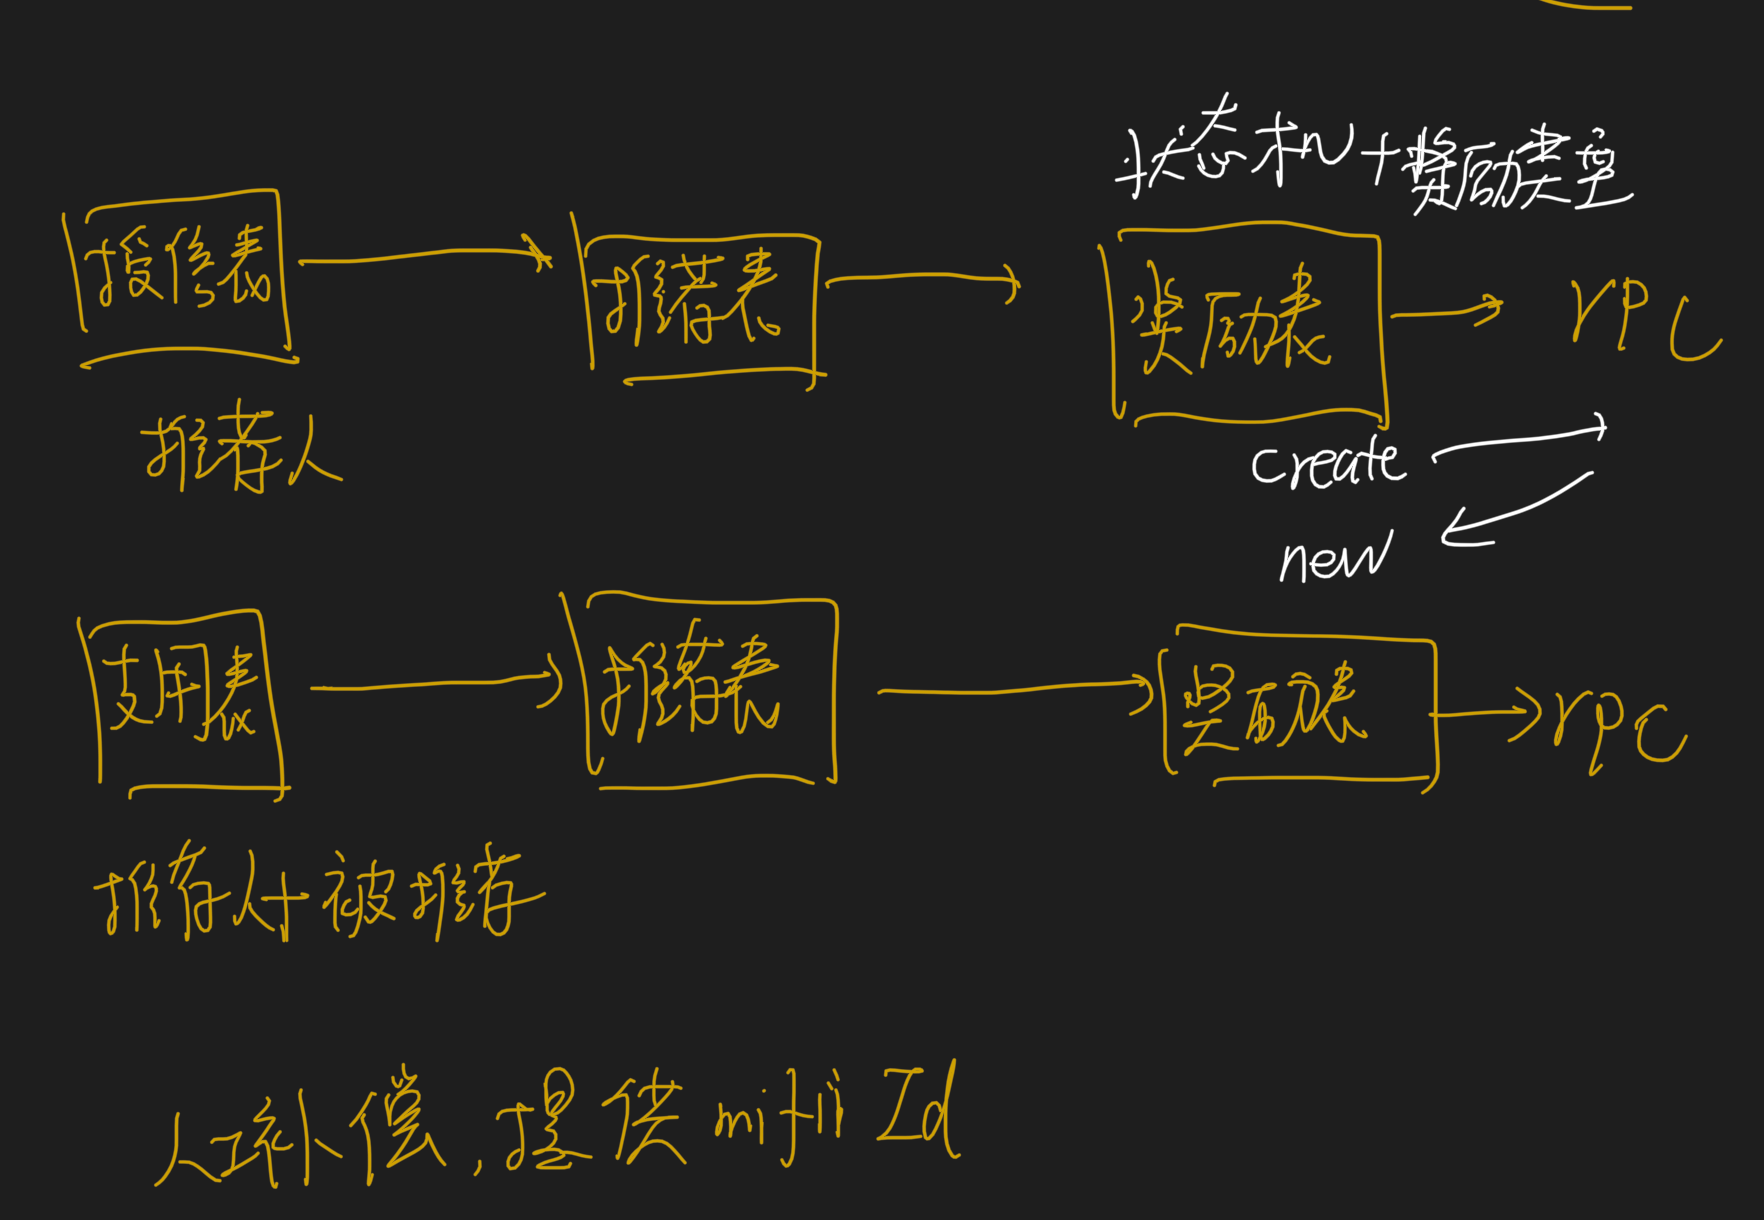 状态机+奖励类型
授信表
推荐表
奖励表
rpc
推荐人
create
new
支用表
推荐表
奖励表
rpc
推荐人+被推荐
人工补偿,提供mifiId